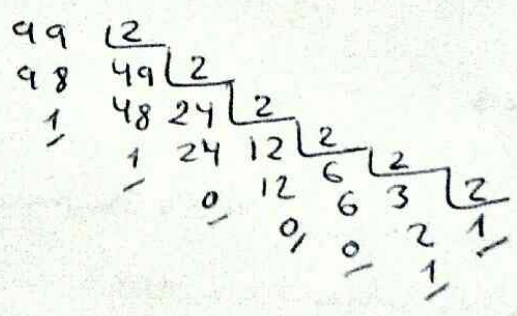 99 2
98 49 2
1 48 24 2
1 24 12 2
0 12 6 2
0 6 3 2
0 2 1
1